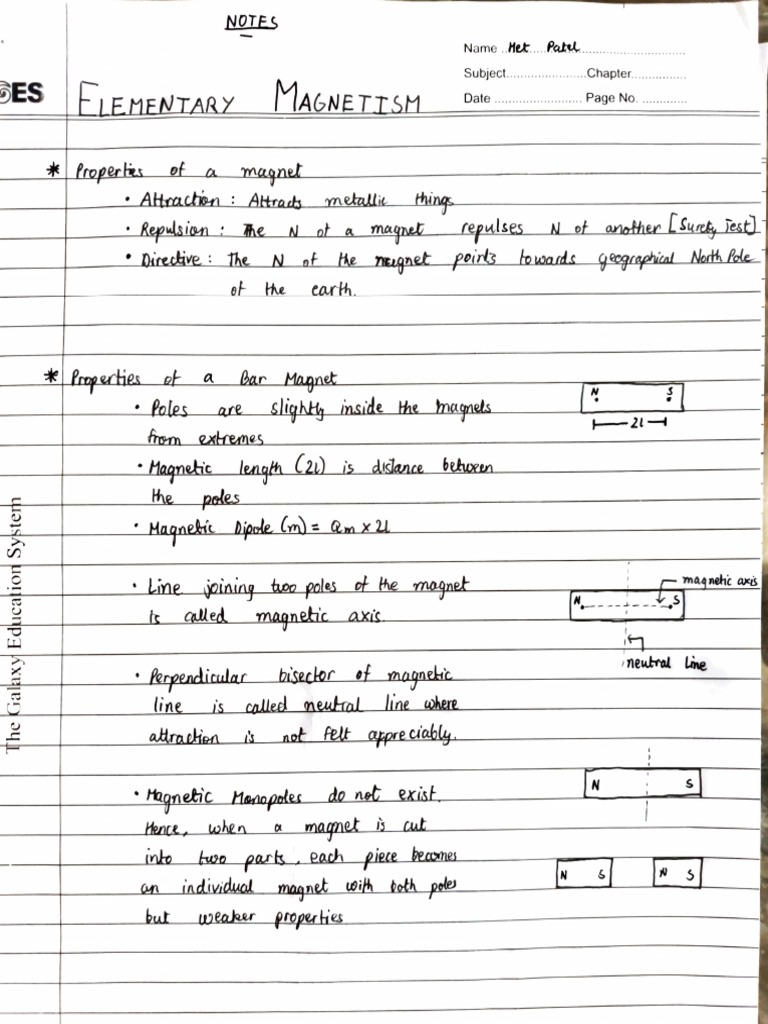 NOTES
Name ..Met.....Patel............................
Subject......................Chapter...............
Date .......................... Page No. .............
GES
ELEMENTARY MAGNETISM
* Properties of a magnet
• Attraction : Attracts metallic things
• Repulsion : The N of a magnet repulses N of another [Surety Test]
• Directive : The N of the magnet points towards geographical North Pole
of the earth.
* Properties of a Bar Magnet
• Poles are slightly inside the magnets
from extremes
N S
2l
• Magnetic length (2l) is distance between
the poles
• Magnetic Dipole (m) = Qm x 2l
• Line joining two poles of the magnet
is called magnetic axis.
magnetic axis
N S
neutral line
• Perpendicular bisector of magnetic
line is called neutral line where
attraction is not felt appreciably.
• Magnetic Monopoles do not exist.
Hence, when a magnet is cut
into two parts, each piece becomes
an individual magnet with both poles
but weaker properties
N S
N S N S
The Galaxy Education System